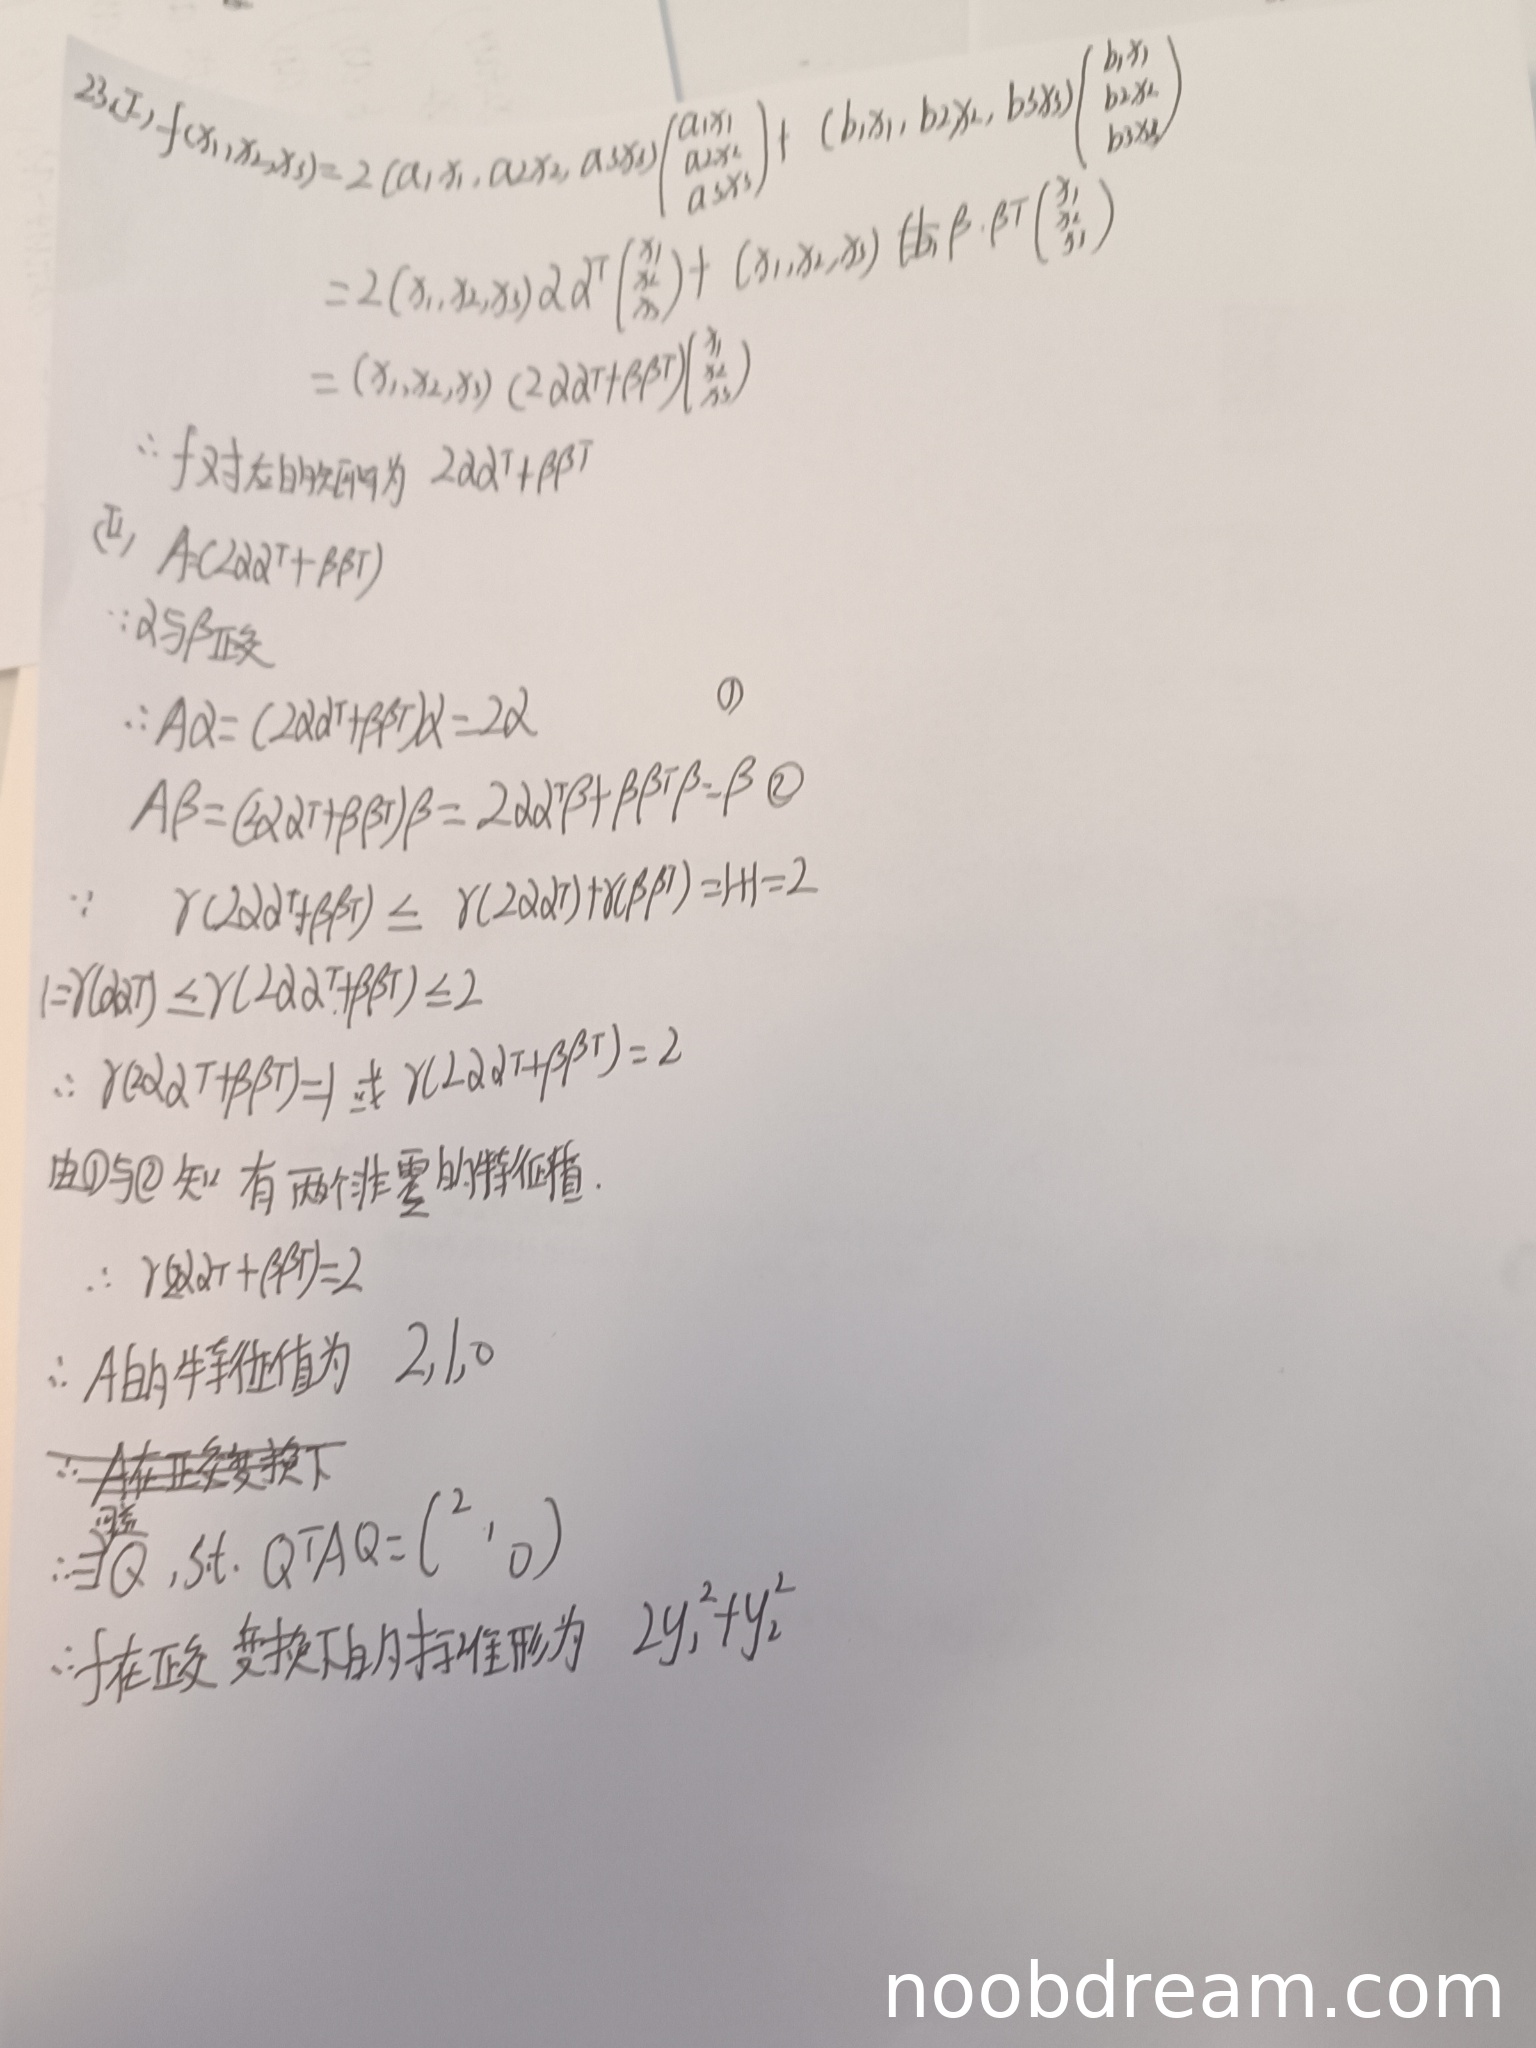 23(I) f(x₁,x₂,x₃)=2(a₁x₁, a₂x₂, a₃x₃)(a₁x₁ a₂x₂ a₃x₃)+(b₁x₁, b₂x₂, b₃x₃)(b₁x₁ b₂x₂ b₃x₃)
=2(x₁,x₂,x₃)αα^T(x₁ x₂ x₃)+(x₁,x₂,x₃)β·β^T(x₁ x₂ x₃)
=(x₁,x₂,x₃)(2αα^T+ββ^T)(x₁ x₂ x₃)
∴f对应的矩阵为 2αα^T+ββ^T
(II) A=(2αα^T+ββ^T)
∵α与β正交
∴Aα=(2αα^T+ββ^T)α=2α ①
Aβ=(2αα^T+ββ^T)β=2αα^Tβ+ββ^Tβ=β ②
∵ r(2αα^T+ββ^T)≤r(2αα^T)+r(ββ^T)=1+1=2
1=r(αα^T)≤r(2αα^T+ββ^T)≤2
∴r(2αα^T+ββ^T)=1或r(2αα^T+ββ^T)=2
由①与②知 有两个非零的特征值.
∴r(2αα^T+ββ^T)=2
∴A的特征值为 2,1,0
∴A在正交变换下
∴∃Q,s.t. Q^TAQ=(2 1 0)
∴f在正交变换下的标准形为 2y₁²+y₂²
noobdream.com